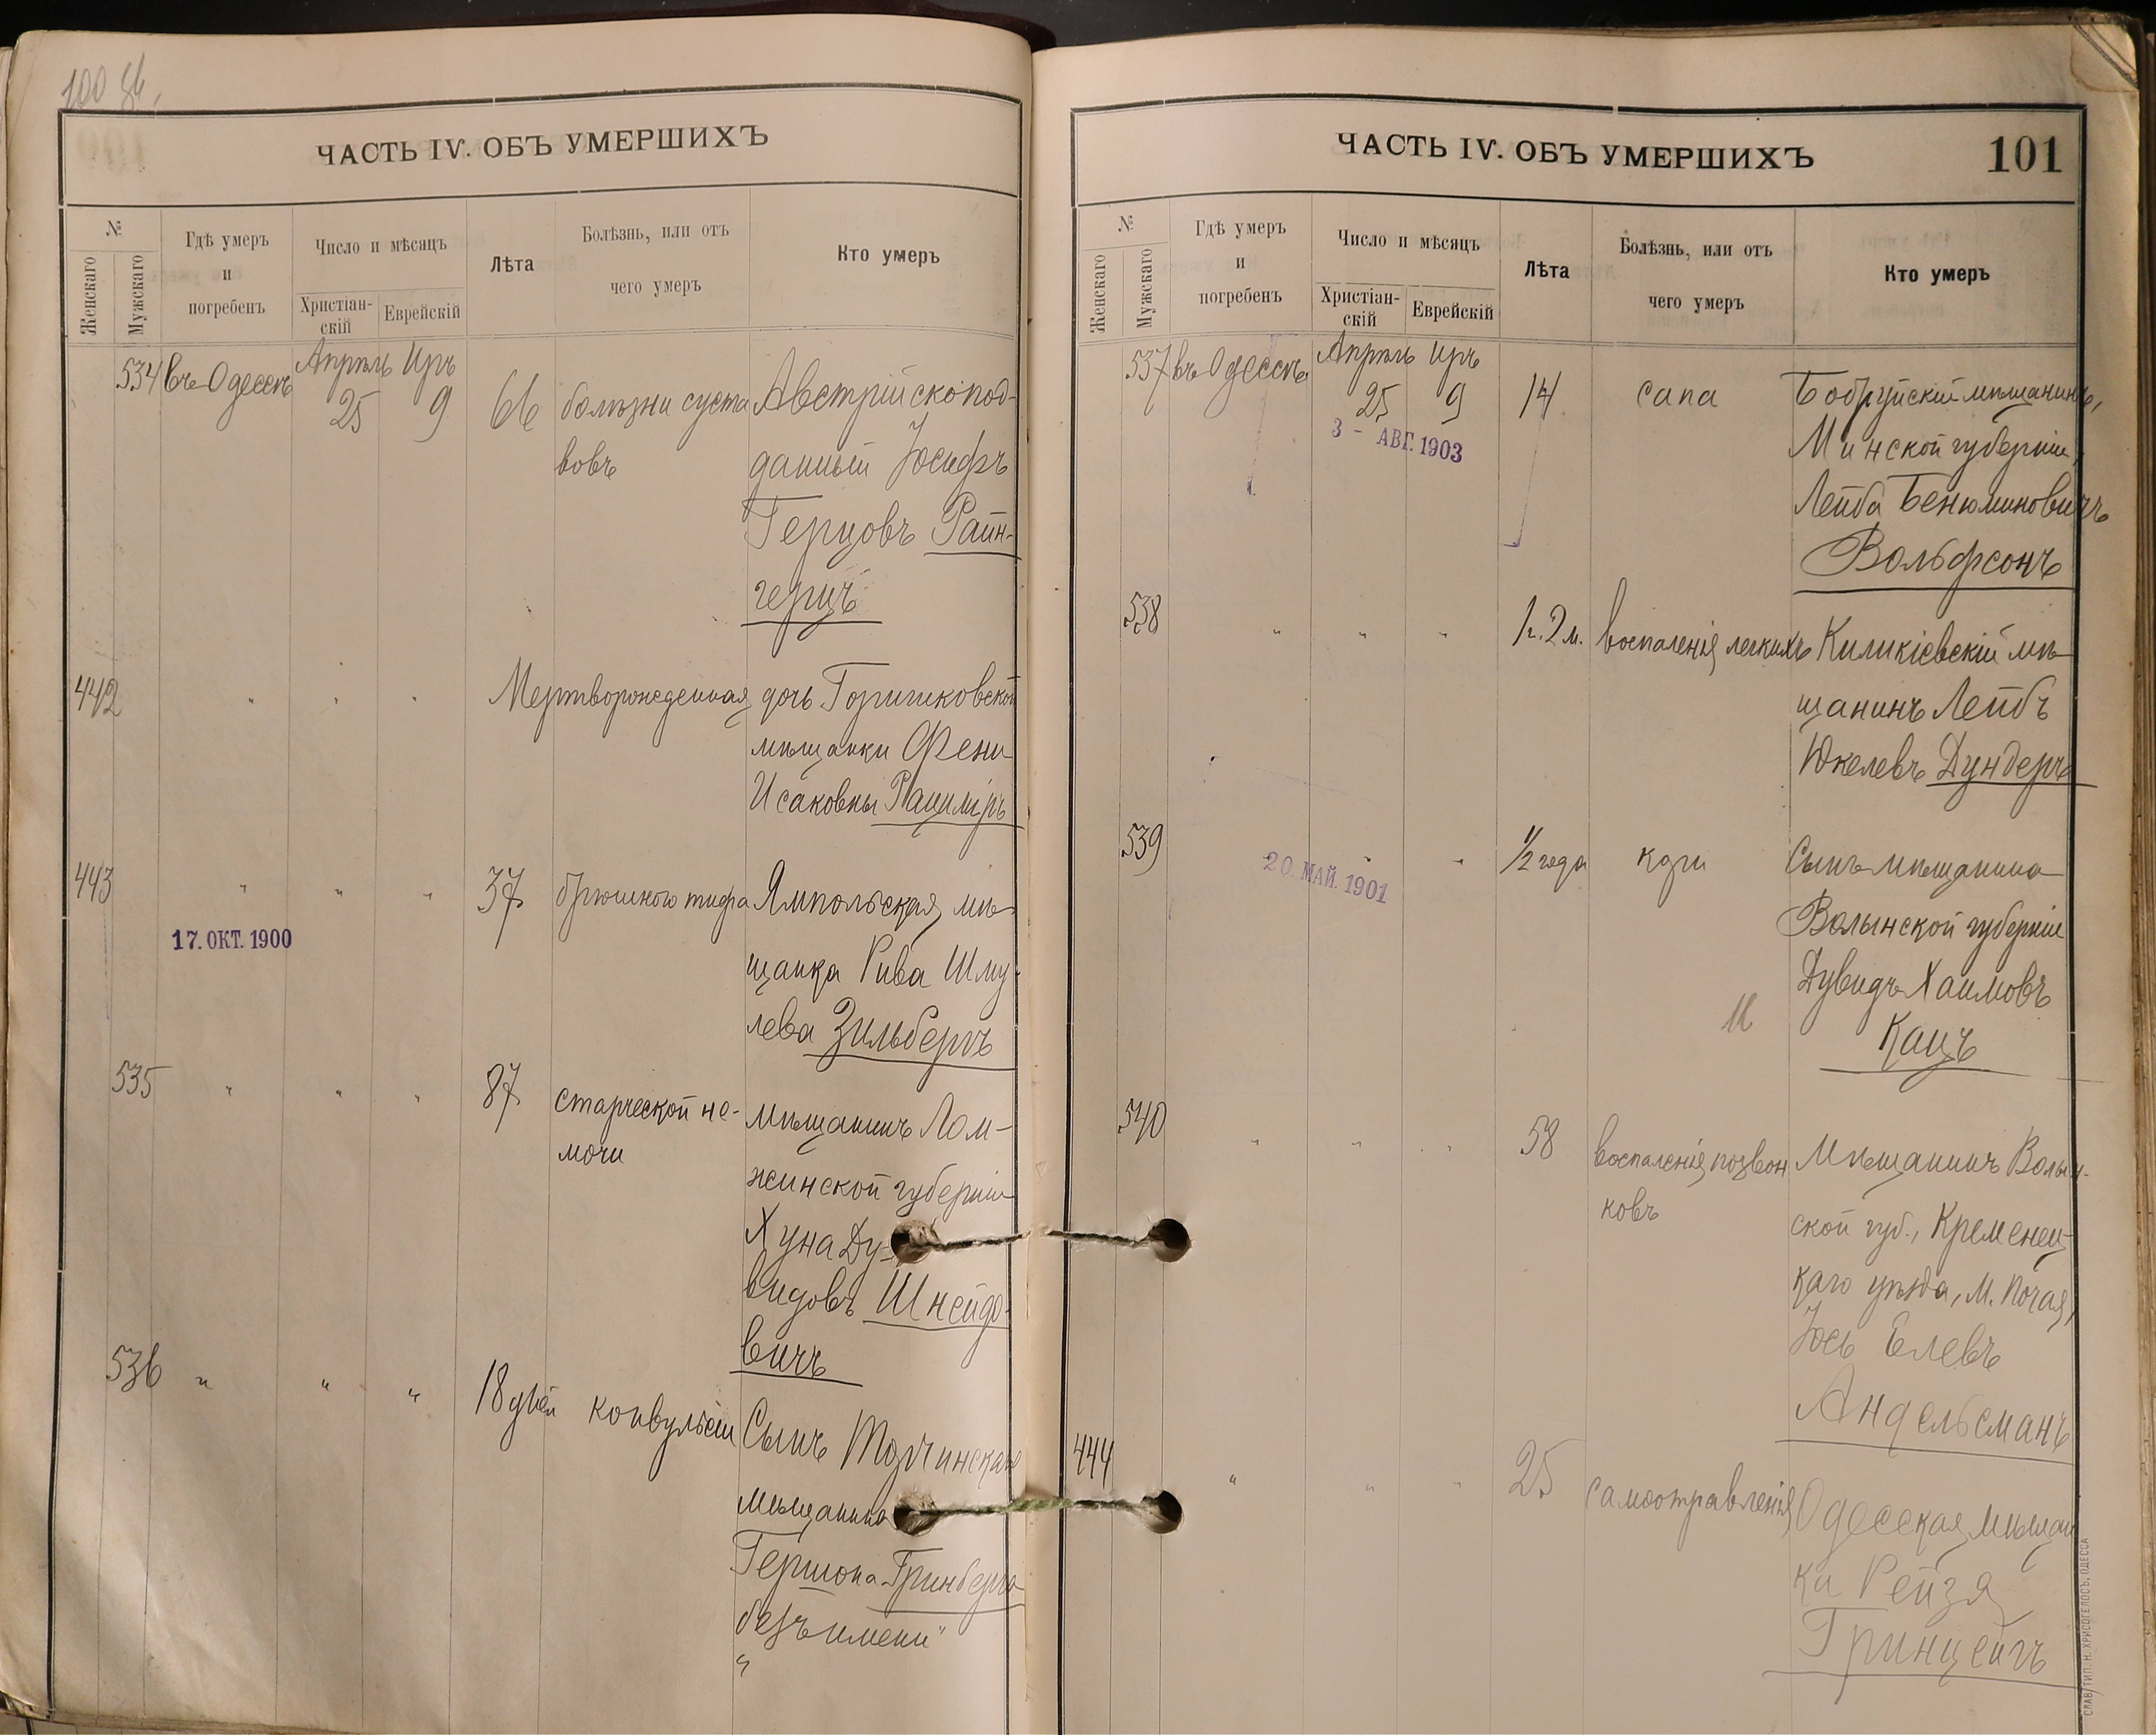 100 об.
ЧАСТЬ IV. ОБЪ УМЕРШИХЪ
№
Женскаго
Мужскаго
Гдѣ умеръ
и
погребенъ
Число и мѣсяцъ
Христіан-
скій
Еврейскій
Лѣта
Болѣзнь, или отъ
чего умеръ
Кто умеръ
534 въ Одессѣ Апрѣль 25 Иръ 9 66 болѣзни суста Австрійскопод-
вовъ данный Іосифъ
Герцовъ Райн-
герцъ
442 " " " Мертворожденная дочь Горишковской
мѣщанки Фени
Исаковны
443 " " " 37 брюшного тифа Ямпольская мѣ-
17. ОКТ. 1900
щанка Рива Шму-
лева Зильбергъ
535 " " " 87 старческой не- мѣщанинъ Лом-
мочи жинской губерніи
Хуна Ду-
видовъ Шнейдо-
вичъ
536 " " " 18 дней конвульсіи Сынъ
мѣщанина
Гершона Гринберга
безъ имени"
"
ЧАСТЬ IV. ОБЪ УМЕРШИХЪ
101
№
Женскаго
Мужскаго
Гдѣ умеръ
и
погребенъ
Число и мѣсяцъ
Христіан-
скій
Еврейскій
Лѣта
Болѣзнь, или отъ
чего умеръ
Кто умеръ
537 въ Одессѣ Апрѣль 25 Иръ 9 14 сапа Бобруйскій мѣщанинъ,
3 - АВГ. 1903
Минской губерніи,
Лейба Бенюминовичъ
Вольфсонъ
538 " " " 1 г. 2 м. воспаленія легкихъ Киликіевскій мѣ-
щанинъ Лейбъ
Юкелевъ Дундеръ
539 " " 1/2 года кори Сынъ мѣщанина
20. МАЙ. 1901
Волынской губерніи
Дувидъ Хаимовъ
Кацъ
540 " " " 58 воспаленія позвон Мѣщанинъ Волын-
ковъ ской губ., Кременец-
каго уѣзда, м. Почая,
Іось Елевъ
Андельсманъ
444 " " " 25 самоотравленія Одесская мѣщан
ка Рейзя
СЛАВ. ТИП. Н. ХРИСОГЕЛОСЪ, ОДЕССА